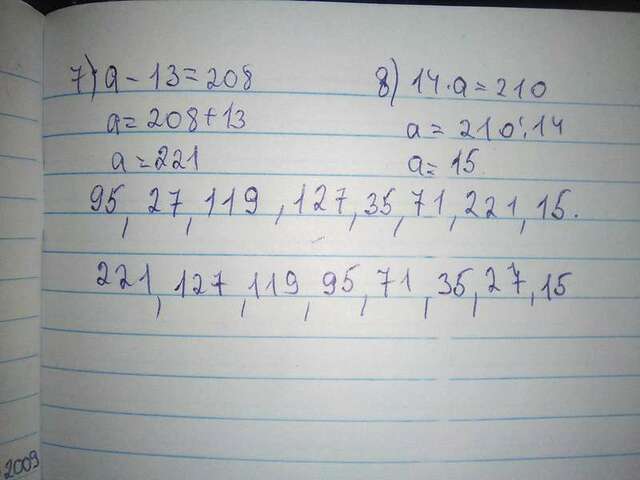 7) a - 13 = 208
a = 208 + 13
a = 221
8) 14 · a = 210
a = 210 : 14
a = 15
95, 27, 119, 127, 35, 71, 221, 15.
221, 127, 119, 95, 71, 35, 27, 15
2009